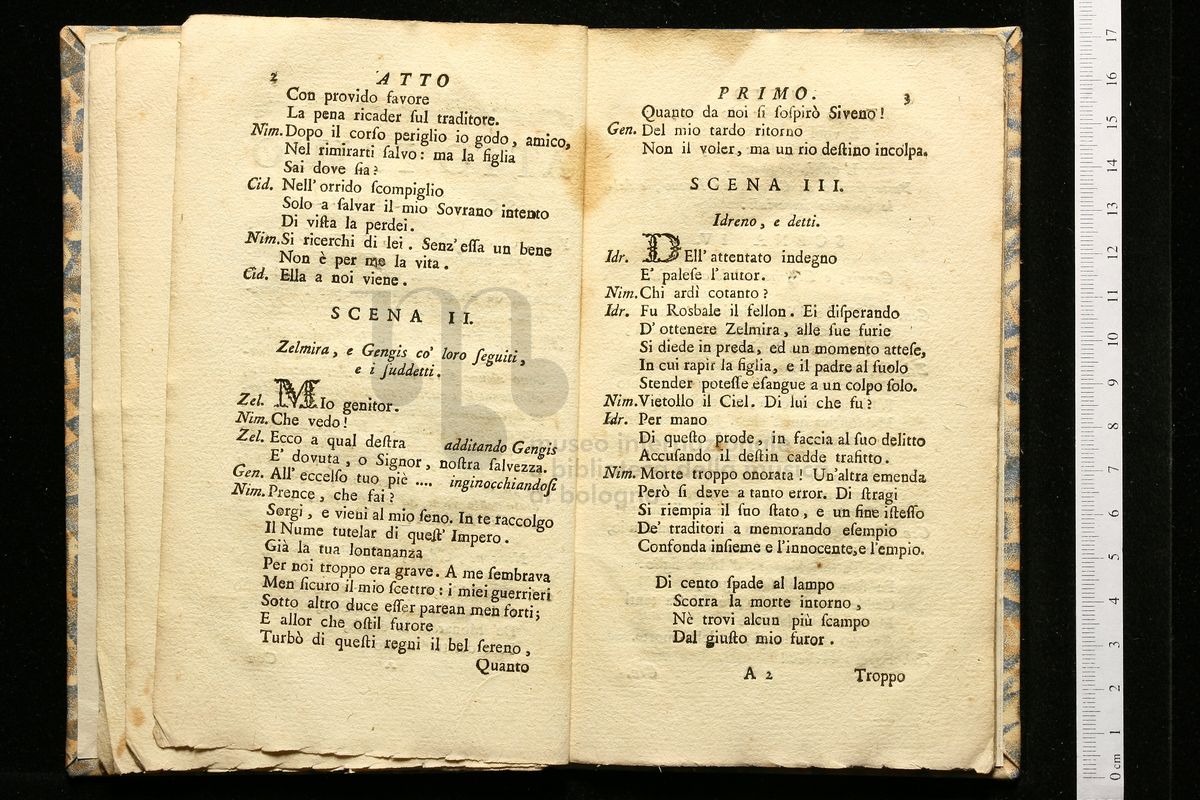 2 ATTO
Con provido favore
La pena ricader ſul traditore.
Nim. Dopo il corſo periglio io godo, amico,
Nel rimirarti ſalvo: ma la figlia
Sai dove ſia?
Cid. Nell' orrido ſcompiglio
Solo a ſalvar il mio Sovrano intento
Di viſta la perdei.
Nim. Si ricerchi di lei. Senz' eſſa un bene
Non è per me la vita.
Cid. Ella a noi viene.
SCENA II.
Zelmira, e Gengis co' loro ſeguiti,
e i ſuddetti.
Zel. MIo genitor.
Nim. Che vedo!
Zel. Ecco a qual deſtra additando Gengis
E' dovuta, o Signor, noſtra ſalvezza.
Gen. All' eccelſo tuo piè .... inginocchiandoſi
Nim. Prence, che fai?
Sorgi, e vieni al mio ſeno. In te raccolgo
Il Nume tutelar di queſt' Impero.
Già la tua lontananza
Per noi troppo era grave. A me ſembrava
Men ſicuro il mio ſcettro: i miei guerrieri
Sotto altro duce eſſer parean men forti;
E allor che oſtil furore
Turbò di queſti regni il bel ſereno,
Quanto
PRIMO. 3
Quanto da noi ſi ſoſpirò Siveno!
Gen. Del mio tardo ritorno
Non il voler, ma un rio deſtino incolpa.
SCENA III.
Idreno, e detti.
Idr. DEll' attentato indegno
E' paleſe l' autor.
Nim. Chi ardì cotanto?
Idr. Fu Rosbale il fellon. Ei diſperando
D' ottenere Zelmira, alle ſue furie
Si diede in preda, ed un momento atteſe,
In cui rapir la figlia, e il padre al ſuolo
Stender poteſſe eſangue a un colpo ſolo.
Nim. Vietollo il Ciel. Di lui che fu?
Idr. Per mano
Di queſto prode, in faccia al ſuo delitto
Accuſando il deſtin cadde trafitto.
Nim. Morte troppo onorata! Un' altra emenda
Però ſi deve a tanto error. Di ſtragi
Si riempia il ſuo ſtato, e un fine iſteſſo
De' traditori a memorando eſempio
Confonda inſieme e l'innocente, e l'empio.
Di cento ſpade al lampo
Scorra la morte intorno,
Nè trovi alcun più ſcampo
Dal giuſto mio furor.
A 2 Troppo
museo internazionale
biblioteca della musica
di bologna
0 cm 1 2 3 4 5 6 7 8 9 10 11 12 13 14 15 16 17